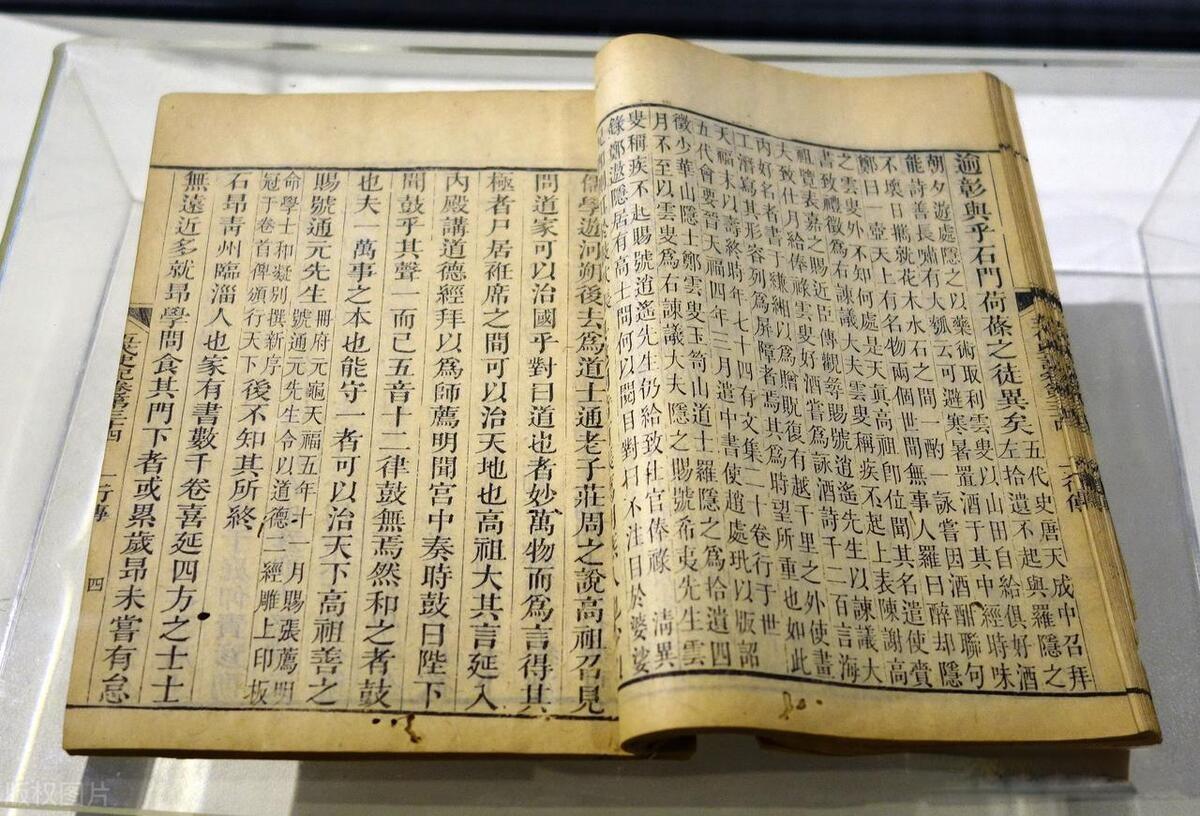 逾彰與乎石門荷蓧之徒異矣五代史唐天成中召拜
左拾遺不起與羅隱之
朝夕遊處隱之以藥術取利雲叟以山田自給俱好酒
能詩善長嘯有大瓢云可避寒暑置酒于其中經時味
不壞日攜就花木水石之間一酌一詠嘗因酒酣聯句
鄭曰一壺天上有名物兩個世間無事人羅曰醉却隱
之雲叟外不知何處是天真高祖卽位聞其名遣使齎
書致禮徵爲右諫議大夫雲叟稱疾不起上表陳謝高
祖覽表嘉之賜近臣傳觀尋賜號逍遙先生以諫議大
夫致仕月給俸祿雲叟好酒嘗爲詠酒詩千二百言海
內好名者書于縑緗以爲贈貺復有越千里之外使畫
工潛寫其形容列爲屏障者焉其爲時望所重也如此
天福末以壽終時年七十四有文集二十卷行于世
五代會要晉天福四年二月遣中書使趙處玭以版詔
徵少華山隱士鄭雲叟玉笥山道士羅隱之爲拾遺四
月不至以雲叟爲右諫議大夫隱之賜號希夷先生雲
叟稱疾不起賜號逍遙先生仍給致仕官俸祿 清異
錄鄭遨隱居有高士問何以閱目對曰不注目於婆娑
儒學遊河朔後去爲道士通老子莊周之說高祖召見
問道家可以治國乎對曰道也者妙萬物而爲言得其
極者尸居袵席之間可以治天地也高祖大其言延入
內殿講道德經拜以爲師薦明聞宮中奏時鼓曰陛下
聞鼓乎其聲一而已五音十二律鼓無焉然和之者鼓
也夫一萬事之本也能守一者可以治天下高祖善之
賜號通元先生冊府元龜天福五年十一月賜張薦明
號通元先生令以道德二經雕上印板
命學士和凝別撰新序
冠于卷首俾頒行天下後不知其所終
石昂青州臨淄人也家有書數千卷喜延四方之士士
無遠近多就昂學問食其門下者或累歲昂未嘗有怠
四
版权图片